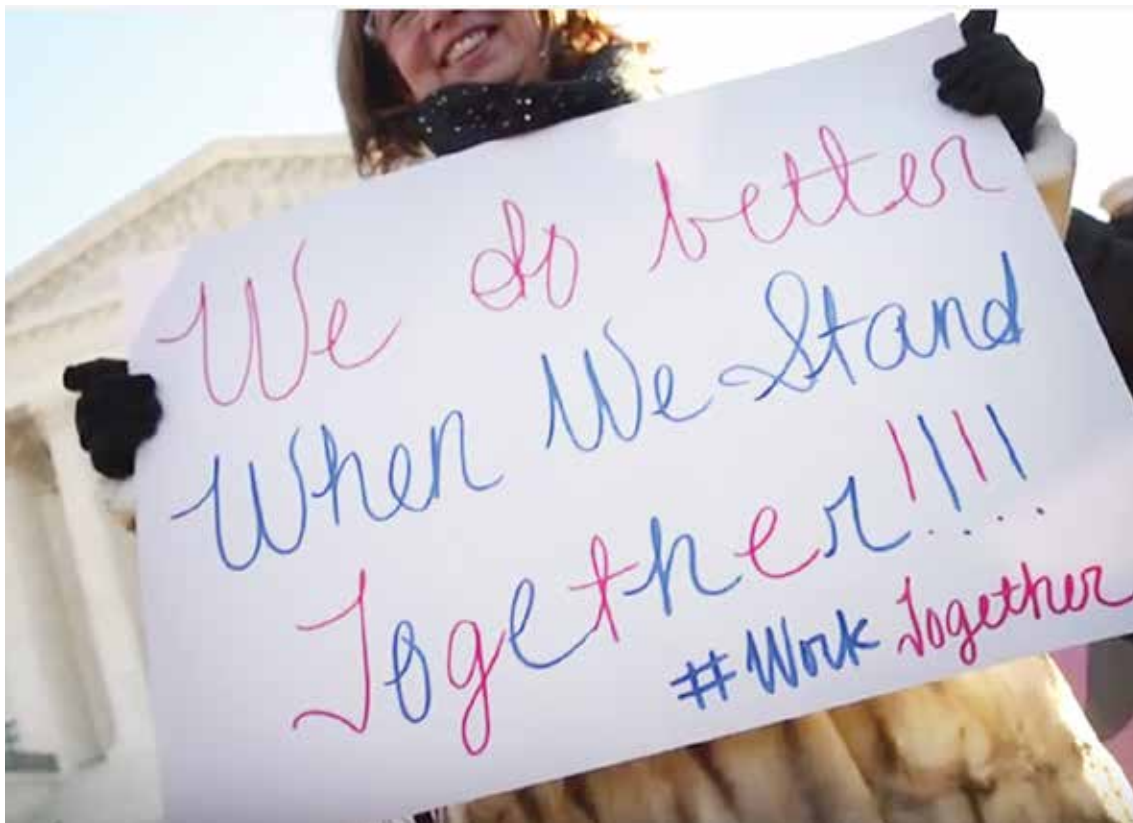 We do better
When We Stand
Together!!!!
#Work Together